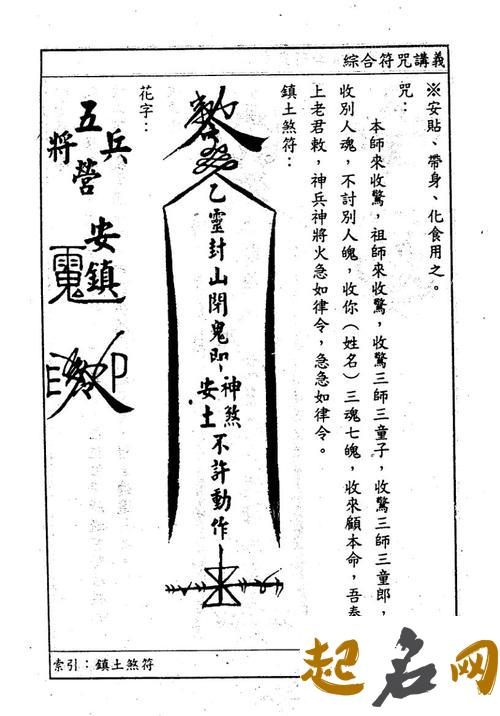 綜合符咒講義
※安貼、帶身、化食用之。
咒：
本師來收驚，祖師來收驚，收驚三師三童子，收驚三師三童郎，
收別人魂，不討別人魄，收你（姓名）三魂七魄，收來顧本命，吾奉
上老君敕，神兵神將火急如律令，急急如律令。
鎮土煞符：
敕
乙靈封山閉鬼
神煞
安土
不許動作
花字：
五
兵
將
營
安
鎮
索引：鎮土煞符
起名网